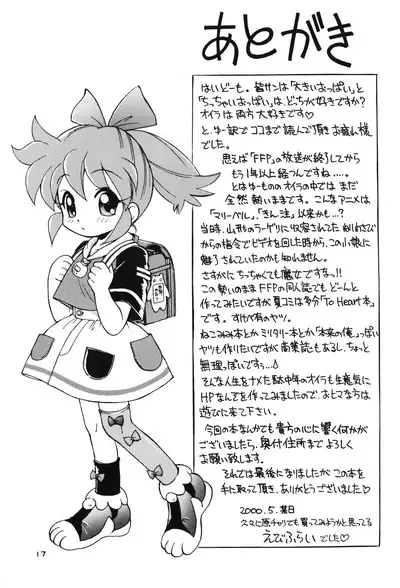 あとがき
はいどーも。皆サンは「大きいおっぱい」と
「ちっちゃいおっぱい」は、どっちが好きですか?
オイラは両方大好きです♡
と、ゆー訳でココまで読んで頂きお疲れ様
でした。
思えば「FFP」の放送が終了してから
もう1年以上経つんですね……。
とはゆーもののオイラの中では まだ
全然 熱いままです。こんなアニメは
「マリーベル」、「きん注」以来かも…?
当時、山形のラーゲリに収容された
からの指令でビデオを回した時から、この小熱に
魅了されていたのかも知れません。
さすがにちっちゃくても魔女ですっ!!
この勢いのままFFPの同人誌でもどーんと
作ってみたいですが夏コミは多分「To Heart本」
です。すけべ有のヤツ。
ねこみみ本とかミリタリー本とか「本来の俺」っぽい
ヤツも作りたいですが商業誌もあるし、ちょっと
無理っぽいですぅ…
そんな人生をナメた駄中年のオイラも生意気に
HPなんてを作ってみましたので、おヒマな方は
遊びに来て下さい。
今回の本なんかでも貴方の心に響く何かが
ございましたら、奥付住所まで よろしく
お願い致します。
それでは最後になりましたが この本を
手に取って頂き、ありがとうございました♡
2000.5.某日
久々に原チャリでも買ってみようかと思ってる
えびふらい でした♡
17